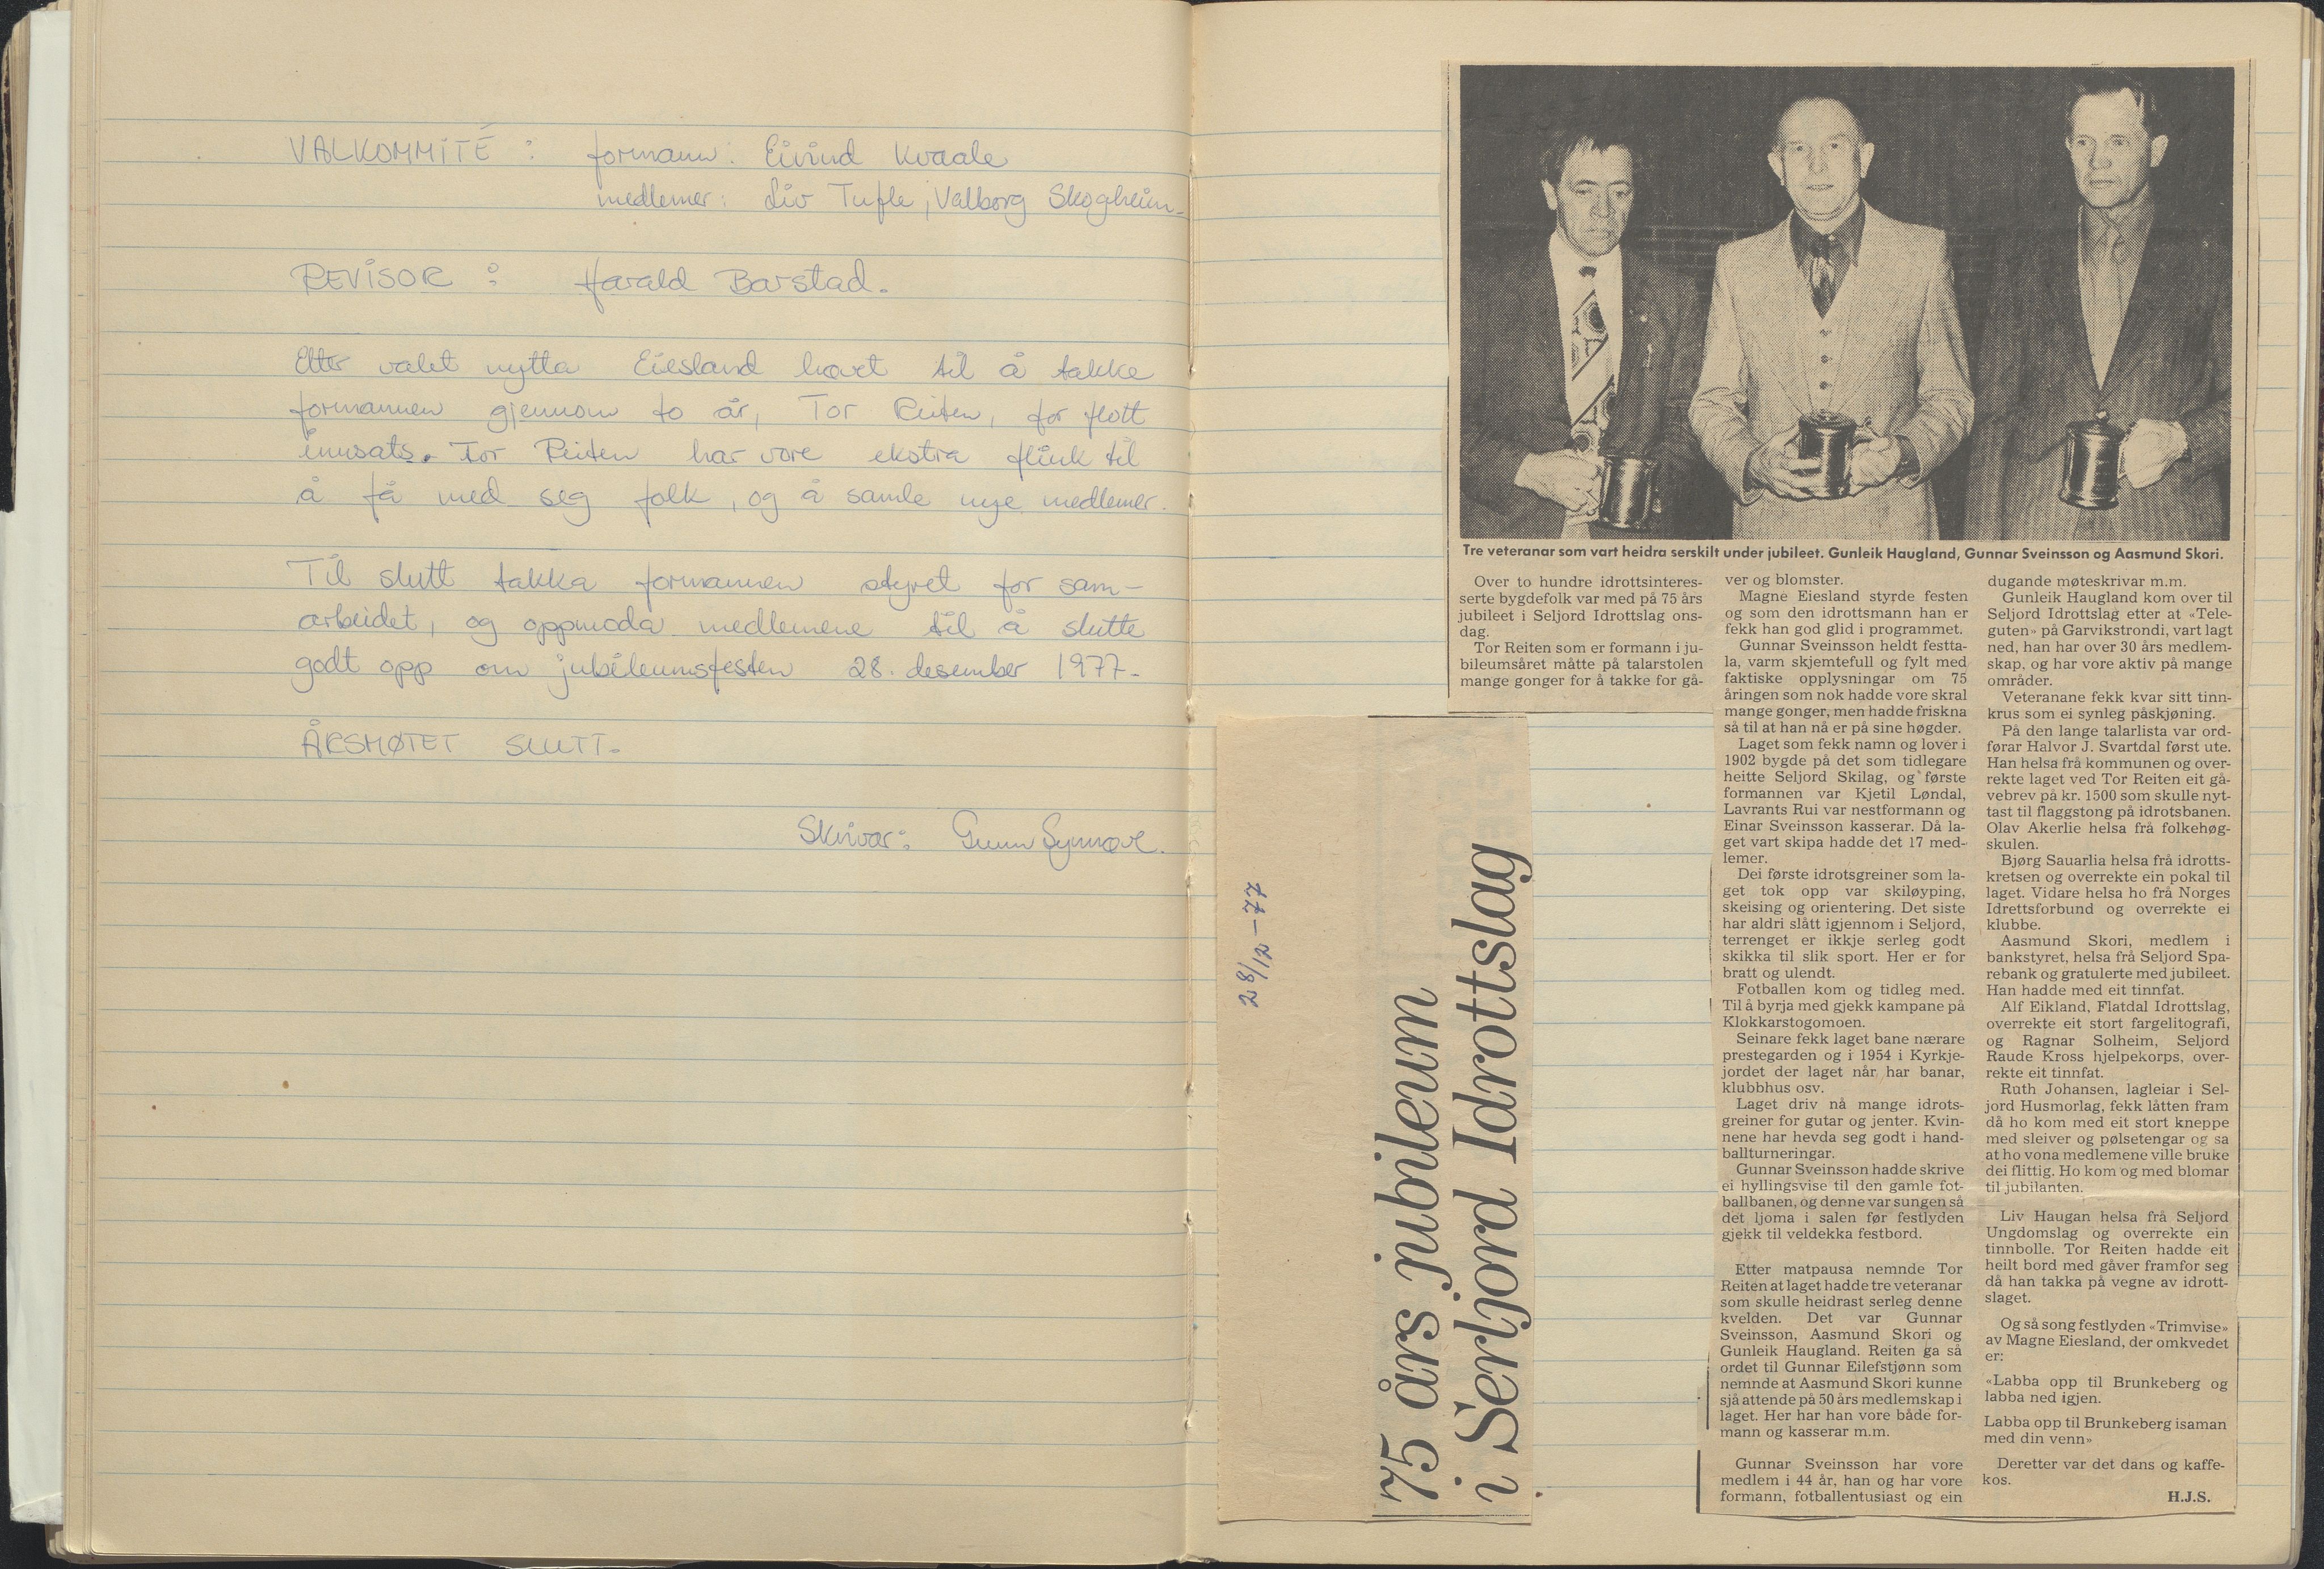 VALKOMMITÉ : formann: Eivind Kvaale
medlemer: Liv Tufle, Valborg Skogheim.
REVISOR : Harald Barstad.
Etter valet nytta Eiesland høvet til å takke
formannen gjennom to år, Tor Reiten, for flott
innsats. Tor Reiten har vore ekstra flink til
å få med seg folk, og å samle nye medlemer.
Til slutt takka formannen styret for sam-
arbeidet, og oppmoda medlemene til å slutte
godt opp om jubileumsfesten 28. desember 1977.
ÅRSMØTET SLUTT.
Skrivar: Gunn Synnøve.
28/12-77
75 års jubileum
i Serljord Idrottslag
Tre veteranar som vart heidra serskilt under jubileet. Gunleik Haugland, Gunnar Sveinsson og Aasmund Skori.
Over to hundre idrottsinteres-
serte bygdefolk var med på 75 års
jubileet i Seljord Idrottslag ons-
dag.
Tor Reiten som er formann i ju-
bileumsåret måtte på talarstolen
mange gonger for å takke for gå-
ver og blomster.
Magne Eiesland styrde festen
og som den idrottsmann han er
fekk han god glid i programmet.
Gunnar Sveinsson heldt festta-
la, varm skjemtefull og fylt med
faktiske opplysningar om 75
åringen som nok hadde vore skral
mange gonger, men hadde friskna
så til at han nå er på sine høgder.
Laget som fekk namn og lover i
1902 bygde på det som tidlegare
heitte Seljord Skilag, og første
formannen var Kjetil Løndal,
Lavrants Rui var nestformann og
Einar Sveinsson kasserar. Då la-
get vart skipa hadde det 17 med-
lemer.
Dei første idrotsgreiner som la-
get tok opp var skiløyping,
skeising og orientering. Det siste
har aldri slått igjennom i Seljord,
terrenget er ikkje serleg godt
skikka til slik sport. Her er for
bratt og ulendt.
Fotballen kom og tidleg med.
Til å byrja med gjekk kampane på
Klokkarstogomoen.
Seinare fekk laget bane nærare
prestegarden og i 1954 i Kyrkje-
jordet der laget når har banar,
klubbhus osv.
Laget driv nå mange idrots-
greiner for gutar og jenter. Kvin-
nene har hevda seg godt i hand-
ballturneringar.
Gunnar Sveinsson hadde skrive
ei hyllingsvise til den gamle fot-
ballbanen, og denne var sungen så
det ljoma i salen før festlyden
gjekk til veldekka festbord.
Etter matpausa nemnde Tor
Reiten at laget hadde tre veteranar
som skulle heidrast serleg denne
kvelden. Det var Gunnar
Sveinsson, Aasmund Skori og
Gunleik Haugland. Reiten ga så
ordet til Gunnar Eilefstjønn som
nemnde at Aasmund Skori kunne
sjå attende på 50 års medlemskap i
laget. Her har han vore både for-
mann og kasserar m.m.
Gunnar Sveinsson har vore
medlem i 44 år, han og har vore
formann, fotballentusiast og ein
dugande møteskrivar m.m.
Gunleik Haugland kom over til
Seljord Idrottslag etter at «Tele-
guten» på Garvikstrondi, vart lagt
ned, han har over 30 års medlem-
skap, og har vore aktiv på mange
områder.
Veteranane fekk kvar sitt tinn-
krus som ei synleg påskjøning.
På den lange talarlista var ord-
førar Halvor J. Svartdal først ute.
Han helsa frå kommunen og over-
rekte laget ved Tor Reiten eit gå-
vebrev på kr. 1500 som skulle nyt-
tast til flaggstong på idrotsbanen.
Olav Akerlie helsa frå folkehøg-
skulen.
Bjørg Sauarlia helsa frå idrotts-
kretsen og overrekte ein pokal til
laget. Vidare helsa ho frå Norges
Idrettsforbund og overrekte ei
klubbe.
Aasmund Skori, medlem i
bankstyret, helsa frå Seljord Spa-
rebank og gratulerte med jubileet.
Han hadde med eit tinnfat.
Alf Eikland, Flatdal Idrottslag,
overrekte eit stort fargelitografi,
og Ragnar Solheim, Seljord
Raude Kross hjelpekorps, over-
rekte eit tinnfat.
Ruth Johansen, lagleiar i Sel-
jord Husmorlag, fekk låtten fram
då ho kom med eit stort kneppe
med sleiver og pølsetengar og sa
at ho vona medlemene ville bruke
dei flittig. Ho kom og med blomar
til jubilanten.
Liv Haugan helsa frå Seljord
Ungdomslag og overrekte ein
tinnbolle. Tor Reiten hadde eit
heilt bord med gåver framfor seg
då han takka på vegne av idrott-
slaget.
Og så song festlyden «Trimvise»
av Magne Eiesland, der omkvedet
er:
«Labba opp til Brunkeberg og
labba ned igjen.
Labba opp til Brunkeberg isaman
med din venn»
Deretter var det dans og kaffe-
kos.
H.J.S.